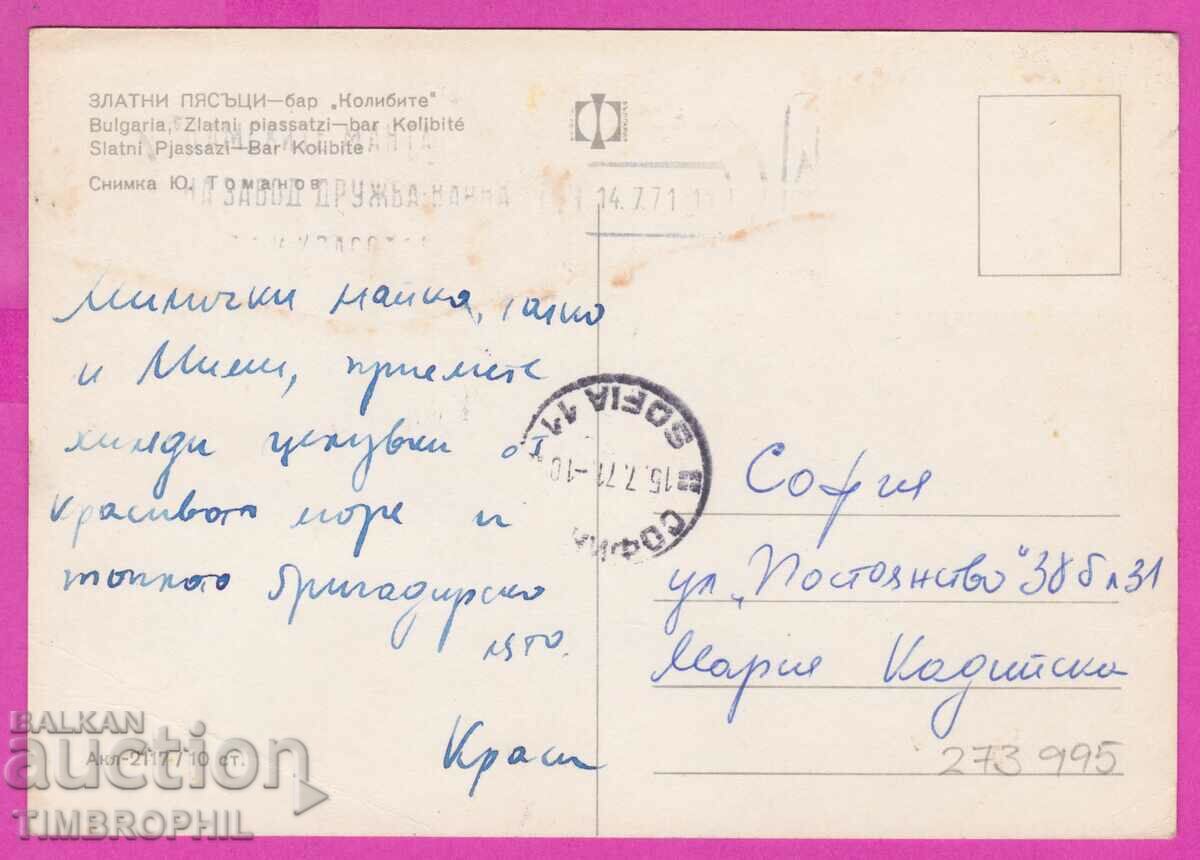 ЗЛАТНИ ПЯСЪЦИ—бар „Колибите"
Bulgaria, Zlatni piassatzi—bar Kolibité
Slatni Pjassazi—Bar Kolibite
Снимка Ю. Томанов
НА ЗАВОД ДРУЖБА-ВАРНА
14.7.71
Милички майка, татко
и Мими, приемете
хиляди целувки от
красивото море и
топлото бригадирско
лято.
Краси
SOFIA 11
15.7.71-10
СОФИЯ
София
ул „Постоянство" 38 бл 31
Мария Кадийска
273 995
Акл-2117 / 10 ст.
BALKAN
auction
TIMBROPHIL